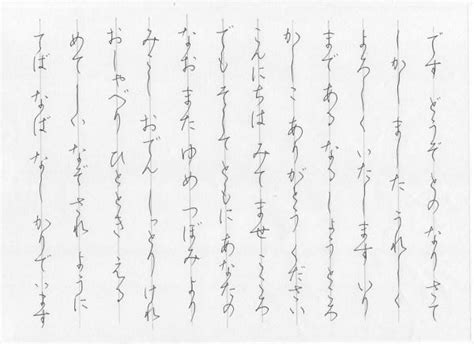 です どうぞ との なり さて
しかし ました うれしく
よろしく いたします いり
まで ある なる しょう ところ
かしこ ありがとう ください
こんにちは みて ませ こころ
でも そして ともに あなたの
なお また ゆめ つぼみ より
みこし おでん しっとり けれ
おしゃべり ひととき える
めて しい なぞ され ように
てば なば なし かり でいます